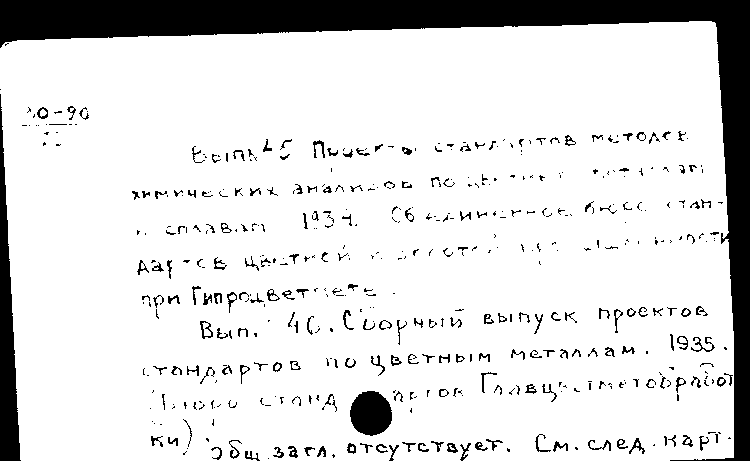 Проекты стандартов методов
химических анализов по цветным металлам
и сплавам 1934. Объединенное бюро стан-
дартов цветной и золотой промышленности
при Гипроцветмете.
Вып. 46. Сборный выпуск проектов
стандартов по цветным металлам. 1935.
(Бюро стандартов Главцветметобработ
ки)
Общ. загл. отсутствует. См. след. карт.